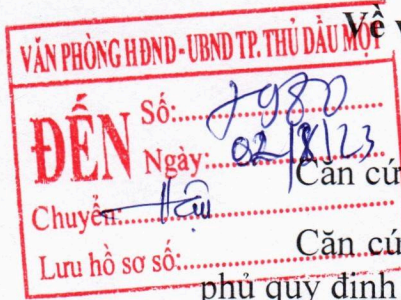 Về v
VĂN PHÒNG HĐND - UBND TP. THỦ DẦU MỘT
ĐẾN
Số: 7980
Ngày: 02/8/23
Chuyển:
Lưu hồ sơ số:
Căn cứ
Căn cứ
phủ quy định